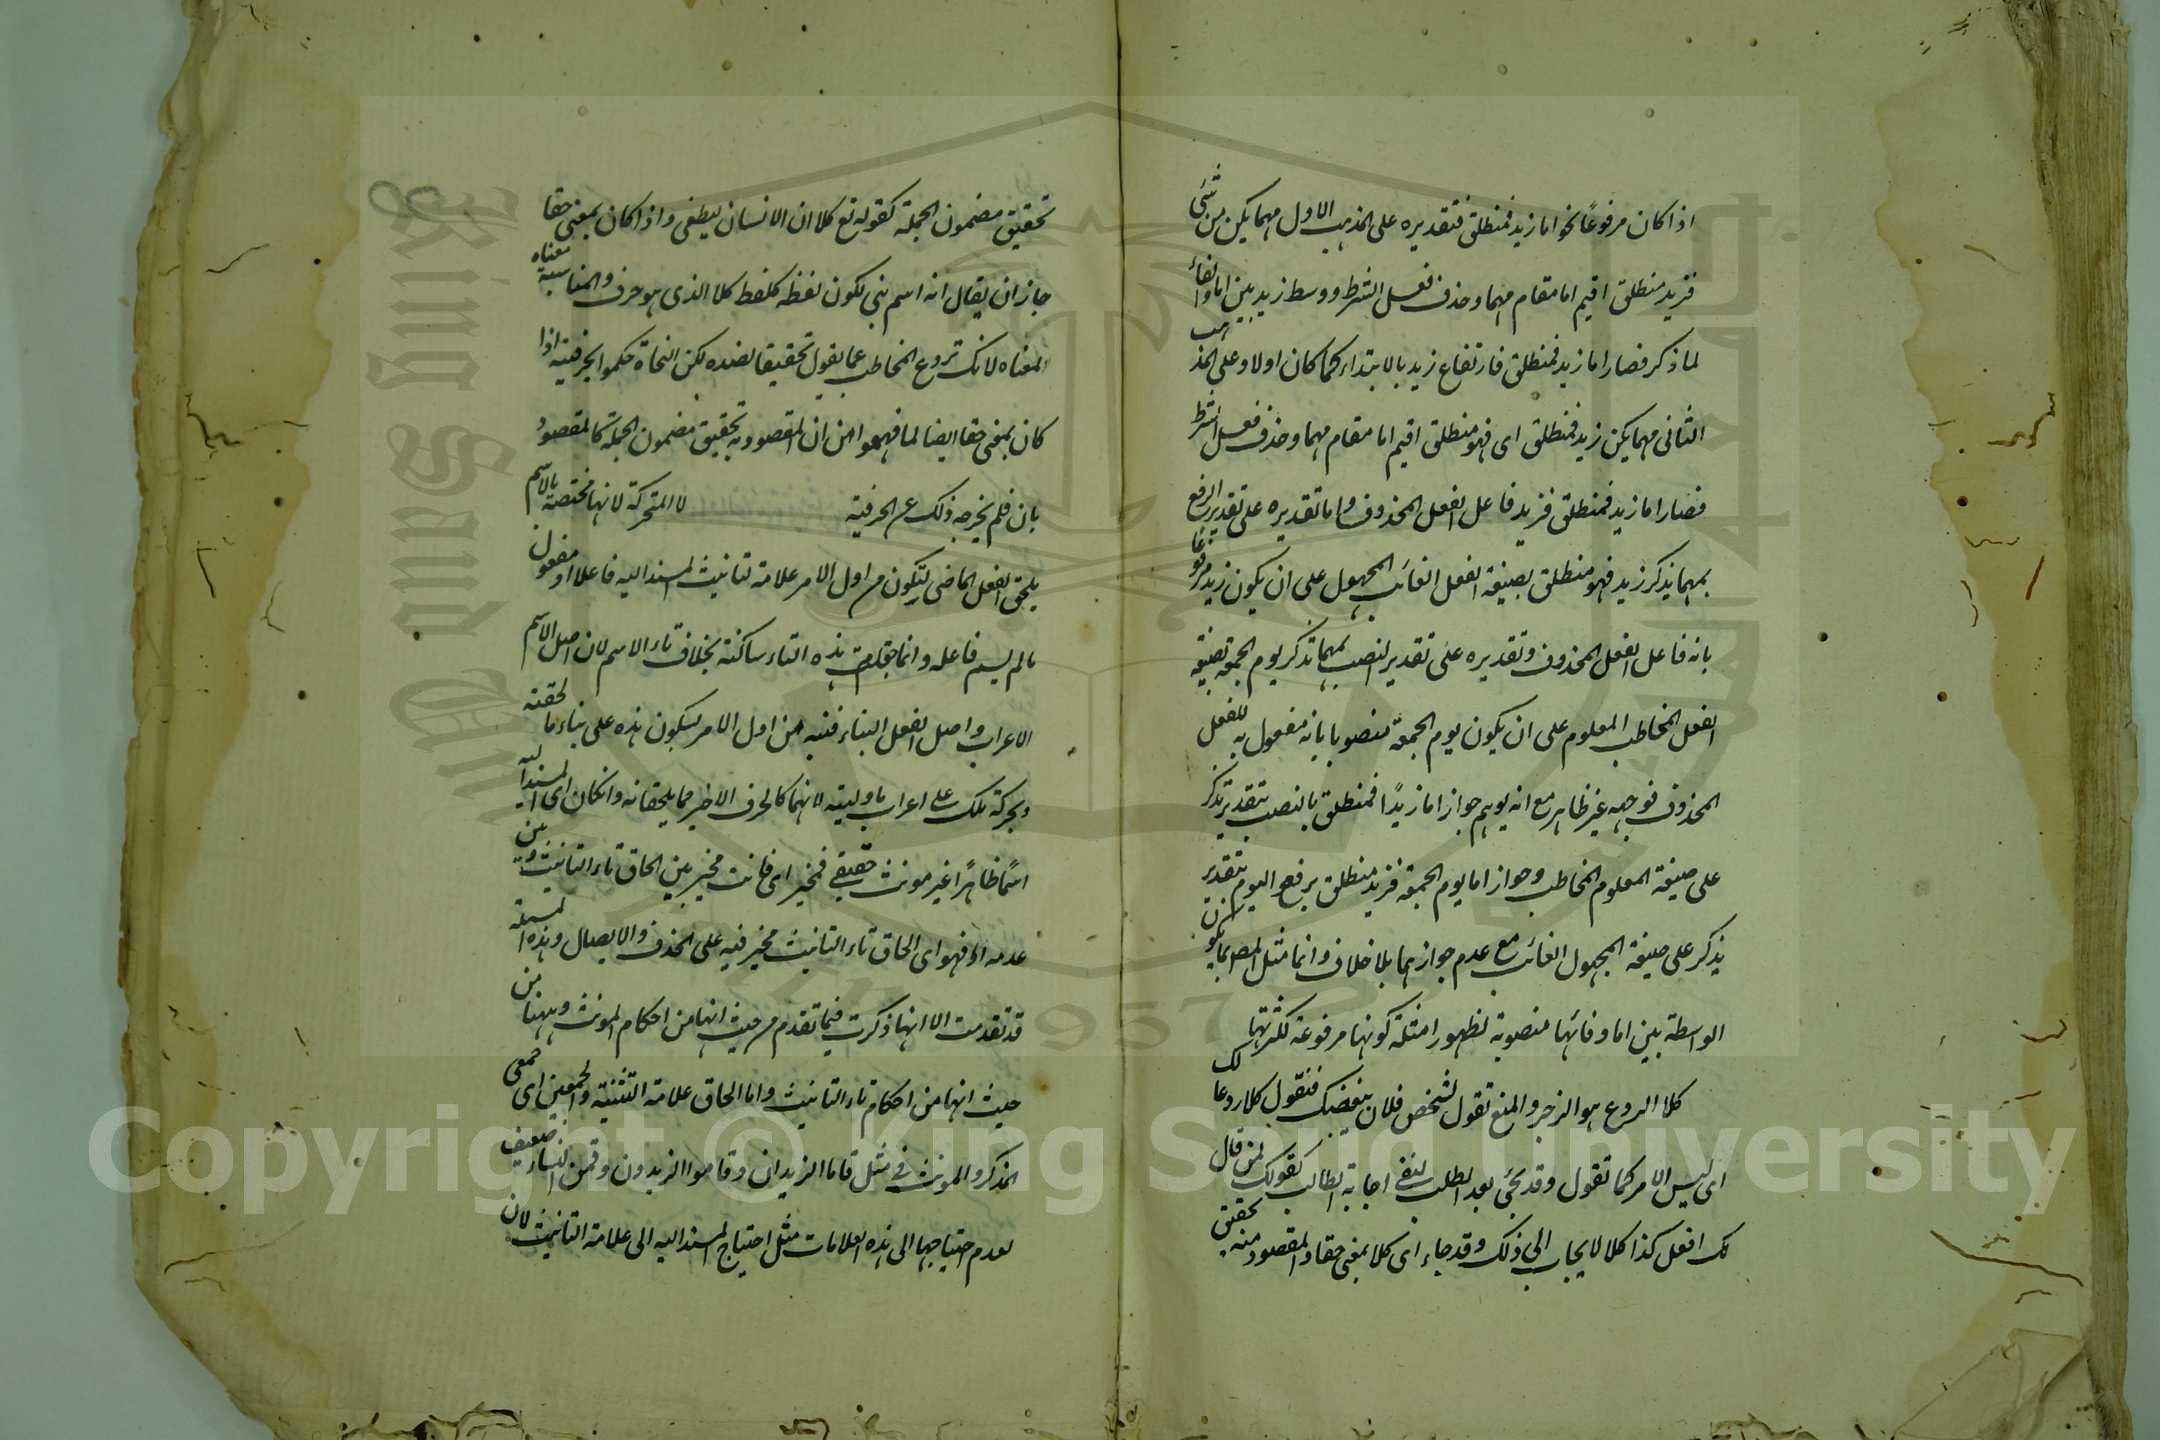 اذا كان مرفوعًا نحو اما زيد فمنطلق فتقديره على المذهب الاول مهما يكن من شئ
فزيد منطلق اقيم اما مقام مهما وحذف فعل الشرط ووسط زيد بين اما والفاء
لما ذكر فصار اما زيد فمنطلق فارتفاع زيد بالابتداء كما كان اولا وعلى المذهب
الثانى مهما يكن زيد فمنطلق اى فهو منطلق اقيم اما مقام مهما وحذف فعل الشرط
فصار اما زيد فمنطلق فزيد فاعل الفعل المحذوف واما تقديره على تقدير الرفع
بمهما يذكر زيد فهو منطلق بصيغة الفعل الغائب المجهول على ان يكون زيد مرفوعا
بانه فاعل الفعل المحذوف وتقديره على تقدير النصب بمهما تذكر يوم الجمعة بصيغة
الفعل المخاطب المعلوم على ان يكون يوم الجمعة منصوبا بانه مفعول به للفعل
المحذوف فوجهه غير ظاهر مع انه يوهم جواز اما زيدًا فمنطلق بالنصب بتقدير تذكر
على صيغة المعلوم المخاطب وجواز اما يوم الجمعة فزيد منطلق برفع اليوم بتقدير
يذكر على صيغة المجهول الغائب مع عدم جوازهما بلا خلاف وانما مثل المص بما يكون
الواسطة بين اما وفائها منصوبة لظهور امثلة كونها مرفوعة لكثرتها
كلا الردع هو الزجر والمنع تقول لشخص فلان يبغضك فتقول كلا ردعا لك
اى ليس الامر كما تقول وقد يجئ بعد الطلب لنفى اجابة الطالب كقولك لمن قال
لك افعل كذا كلا اى لا يجاب الى ذلك وقد جاء اى كلا بمعنى حقا والمقصود منه تحقيق
تحقيق مضمون الجملة كقوله تع كلا ان الانسان ليطغى واذا كان بمعنى حقا
جاز ان يقال انه اسم بنى لكون لفظه كلفظ كلا الذى هو حرف والمناسبة معناه
لمعناه لانك تردع المخاطب عما يقول تحقيقا لضده لكن النحاة حكموا بحرفيته اذا
كان بمعنى حقا ايضا لما فهموا من ان المقصود به تحقيق مضمون الجملة كالمقصود
بان فلم يخرجه ذلك عن الحرفية لا المتحركة لانها مختصة بالاسم
يلحق الفعل الماضى لتكون من اول الامر علامة لتانيث المسند اليه فاعلا او مفعول
ما لم يسم فاعله وانما هذه التاء ساكنة بخلاف تاء الاسم لان اصل الاسم
الاعراب واصل الفعل البناء فنبه من اول الامر بسكون هذه على بناء ما لحقته
وبحركة تلك على اعراب ما وليته لانهما كالحرف الاخير مما يلحقانه وان كان اى المسند اليه
اسمًا ظاهرًا غير مونث حقيقى فمخير اى فانت مخير بين الحاق تاء التانيث وبين
عدمه او فهو اى الحاق تاء التانيث مخير فيه على الحذف والايصال وهذه المسئلة
قد تقدمت الا انها ذكرت فيما تقدم من حيث انها من احكام المونث وههنا من
حيث انها من احكام تاء التانيث واما الحاق علامة التثنية والجمعين اى جمعى
المذكر والمونث فى مثل قاما الزيدان وقاموا الزيدون وقمن النساء فضعيف
لعدم احتياجها الى هذه العلامات مثل احتياج المسند اليه الى علامة التانيث لان
Copyright © King Saud University